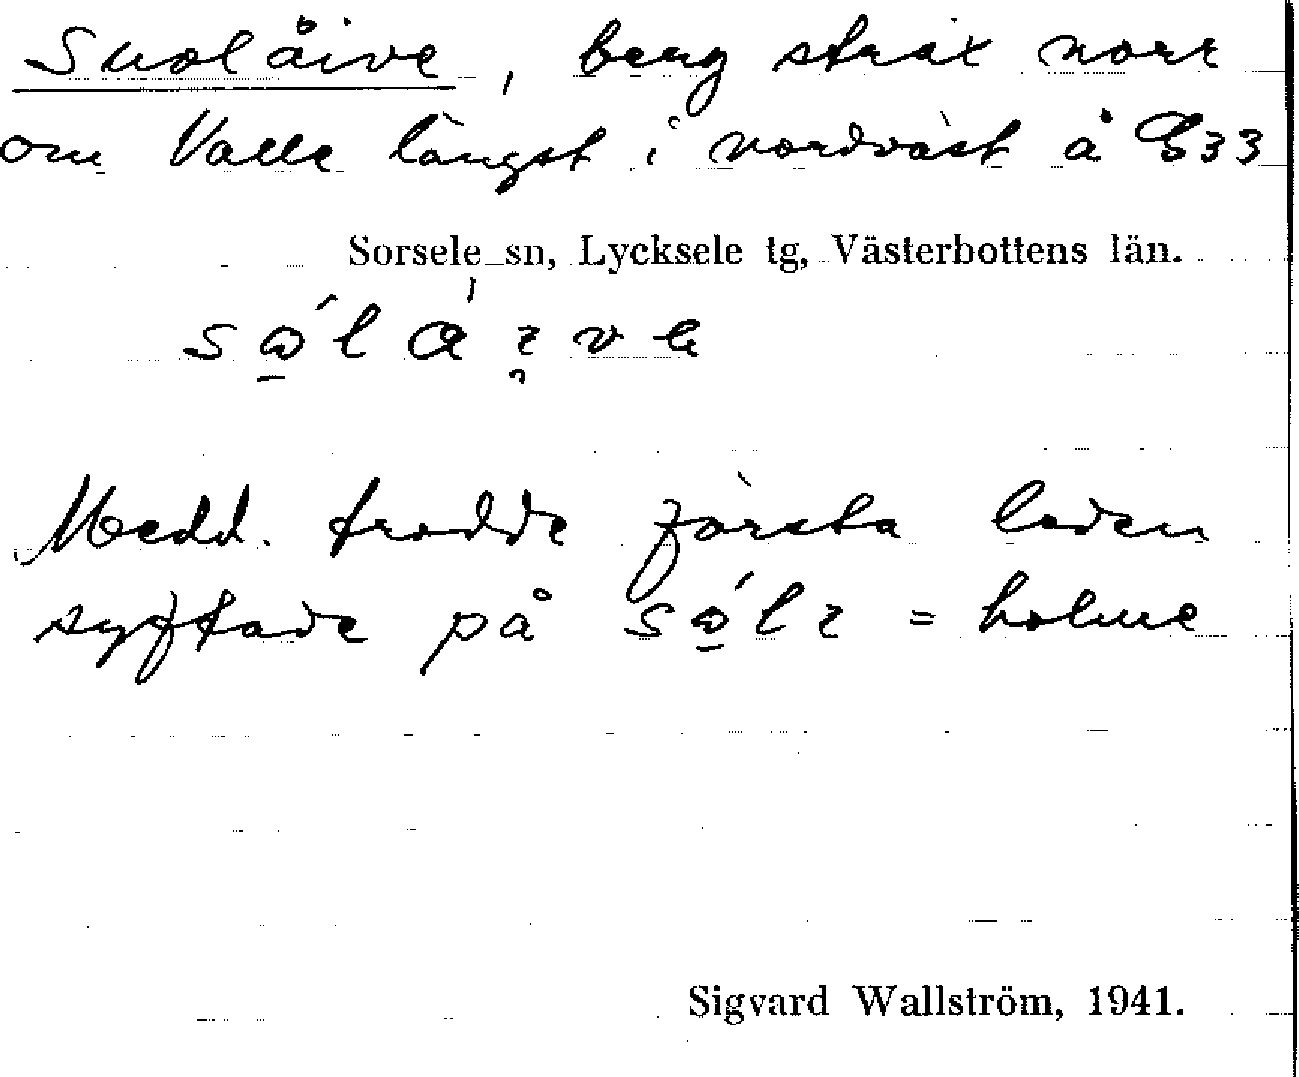 Suolåive, berg strax norr
om Valle längst i nordväst å E33
Sorsele sn, Lycksele tg, Västerbottens län.
Medd. trodde första leden
syftade på = holme
Sigvard Wallström, 1941.